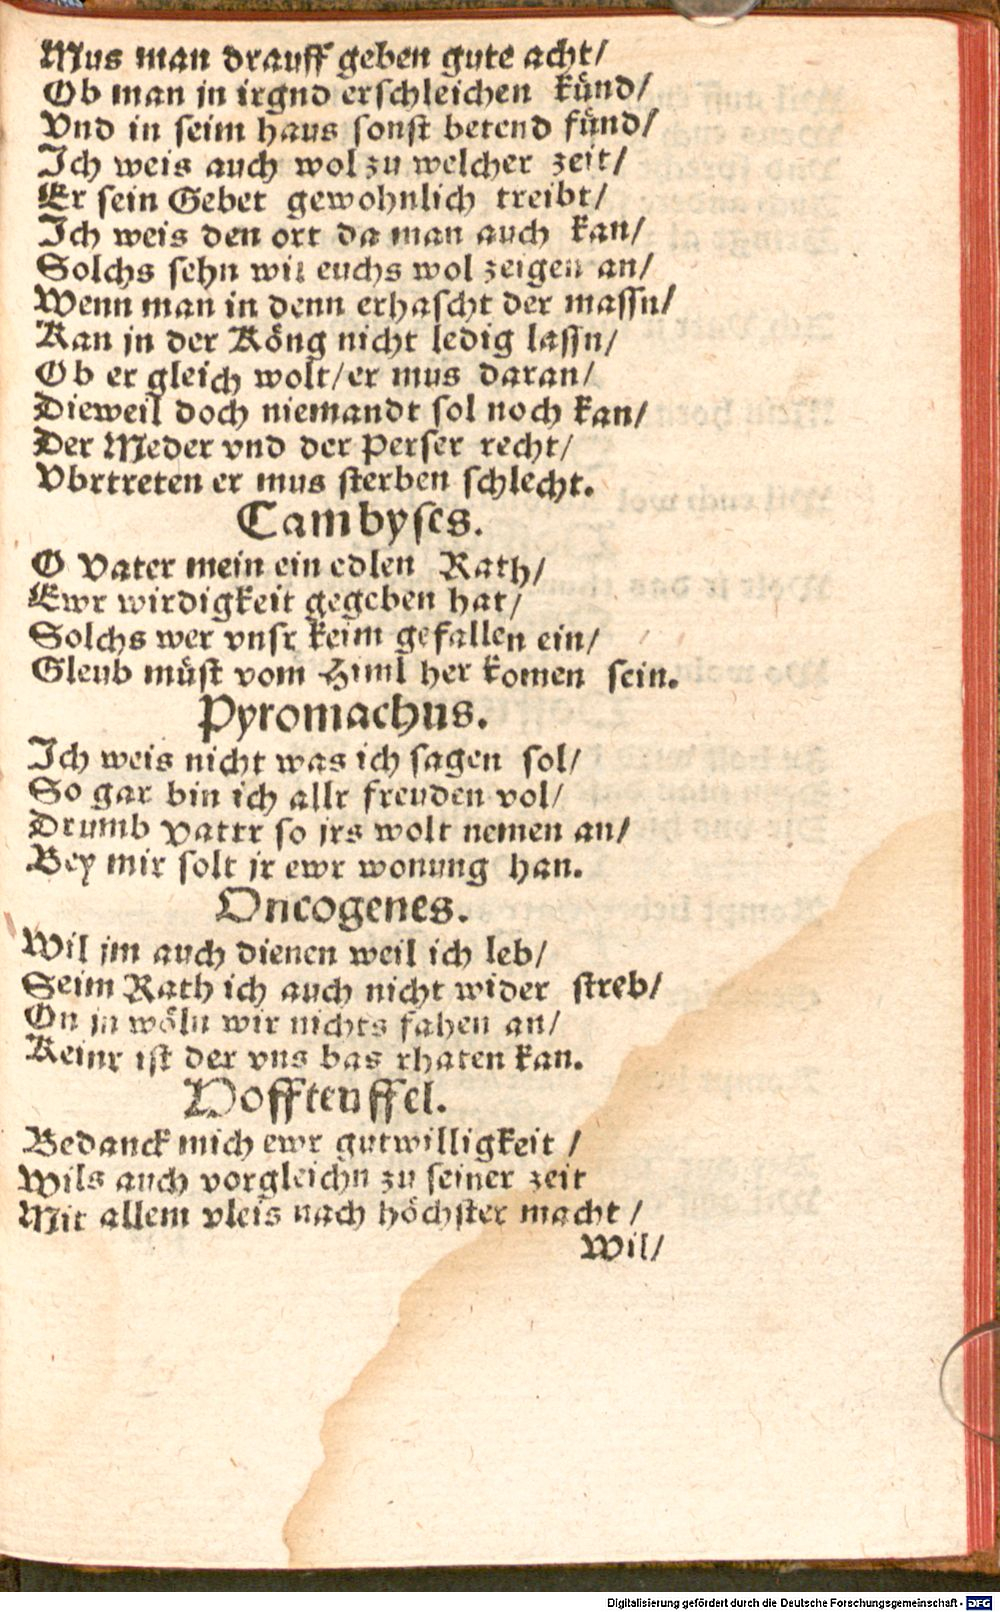 Mus man drauff geben gute acht/
Ob man jn irgnd erschleichen künd/
Vnd in seim haus sonst betend fünd/
Ich weis auch wol zu welcher zeit/
Er sein Gebet gewohnlich treibt/
Ich weis den ort da man auch kan/
Solchs sehn wil euchs wol zeigen an/
Wenn man in denn erhascht der massn/
Kan jn der Köng nicht ledig lassn/
Ob er gleich wolt/er mus daran/
Dieweil doch niemandt sol noch kan/
Der Meder vnd der Perser recht/
Vbrtreten er mus sterben schlecht.
Cambyses.
O Vater mein ein edlen Rath/
Ewr wirdigkeit gegeben hat/
Solchs wer vnsr keim gefallen ein/
Gleub müst vom Himl her komen sein.
Pyromachus.
Ich weis nicht was ich sagen sol/
So gar bin ich allr freuden vol/
Drumb vattr so jrs wolt nemen an/
Bey mir solt jr ewr wonung han.
Oncogenes.
Wil jm auch dienen weil ich leb/
Seim Rath ich auch nicht wider streb/
On jn wöln wir nichts fahen an/
Keinr ist der vns bas rhaten kan.
Hoffteuffel.
Bedanck mich ewr gutwilligkeit /
Wils auch vorgleichn zu seiner zeit
Mit allem vleis nach höchster macht /
Wil/
Digitalisierung gefördert durch die Deutsche Forschungsgemeinschaft - DFG